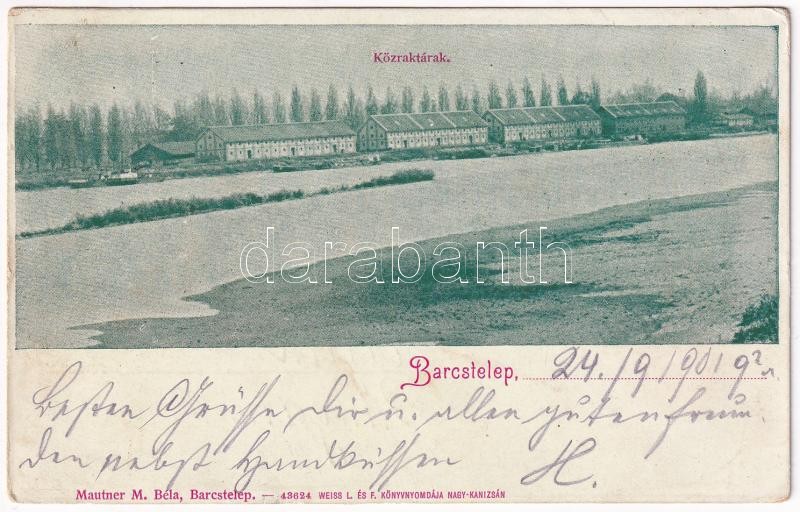 Közraktárak.
darabanth
Barcstelep, 24./9/901 9
Besten Grüsse Dir u. allen guten freun-
den nebst Handküssen H.
Mautner M. Béla, Barcstelep. — 43624 WEISS L. ÉS F. KÖNYVNYOMDÁJA NAGY-KANIZSÁN